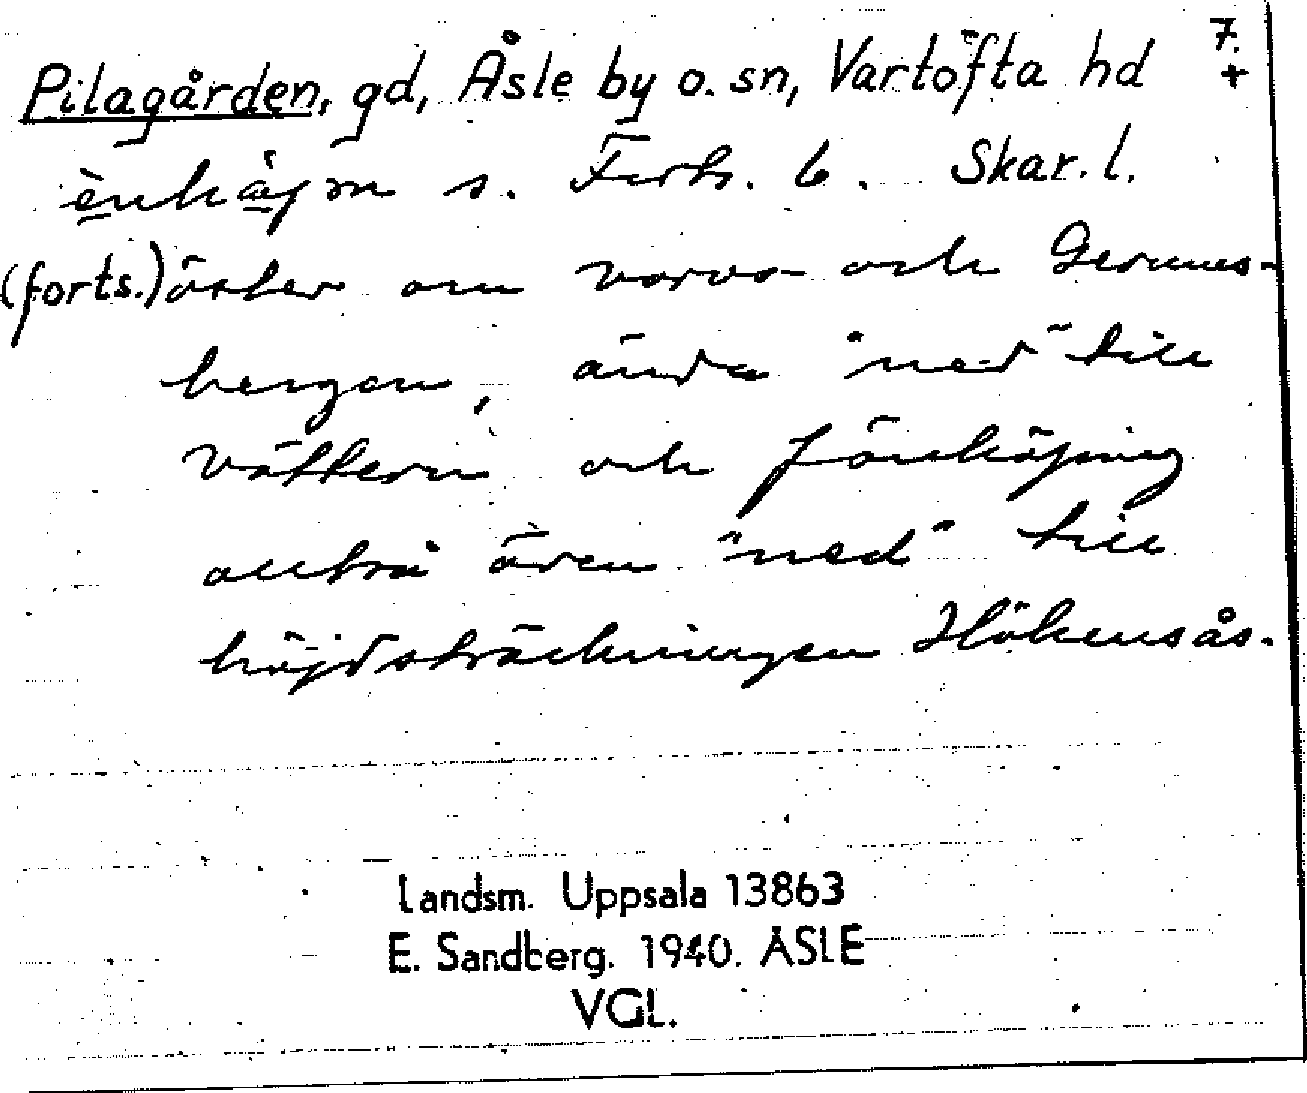 Pilagården, gd, Åsle by o. sn, Vartofta hd 7.
+
s. Forts. 6. Skar. l.
(forts.) öster om varvs- och Gerums-
bergen, ända "ned" till
Vättern och Jönköping
alltså även "ned" till
höjdsträckningen Hökensås.
Landsm. Uppsala 13863
E. Sandberg. 1940. ÅSLE
VGL.